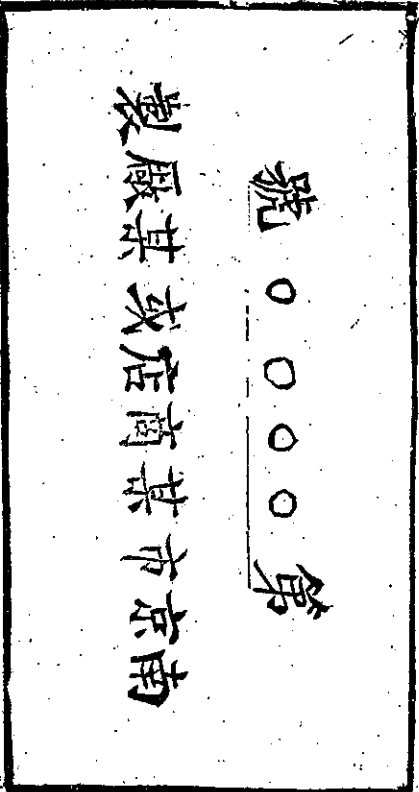 第○○○○號
南京市某商店或某廠製